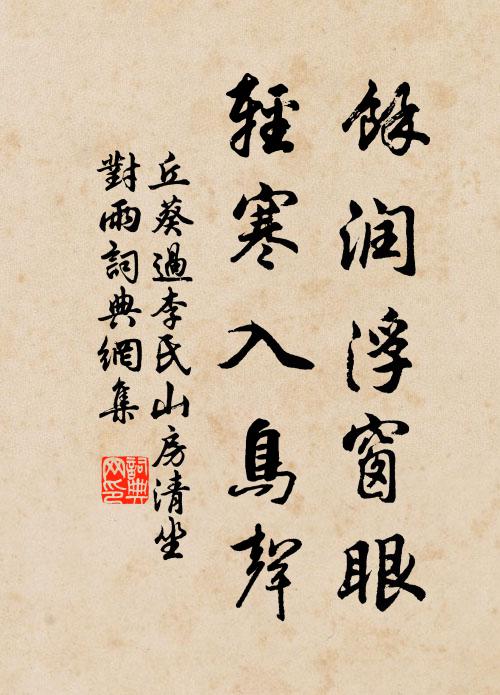 餘润浮窗眼
輕寒入鳥聲
丘葵過李氏山房清坐
對雨詞典網集
詞典網印